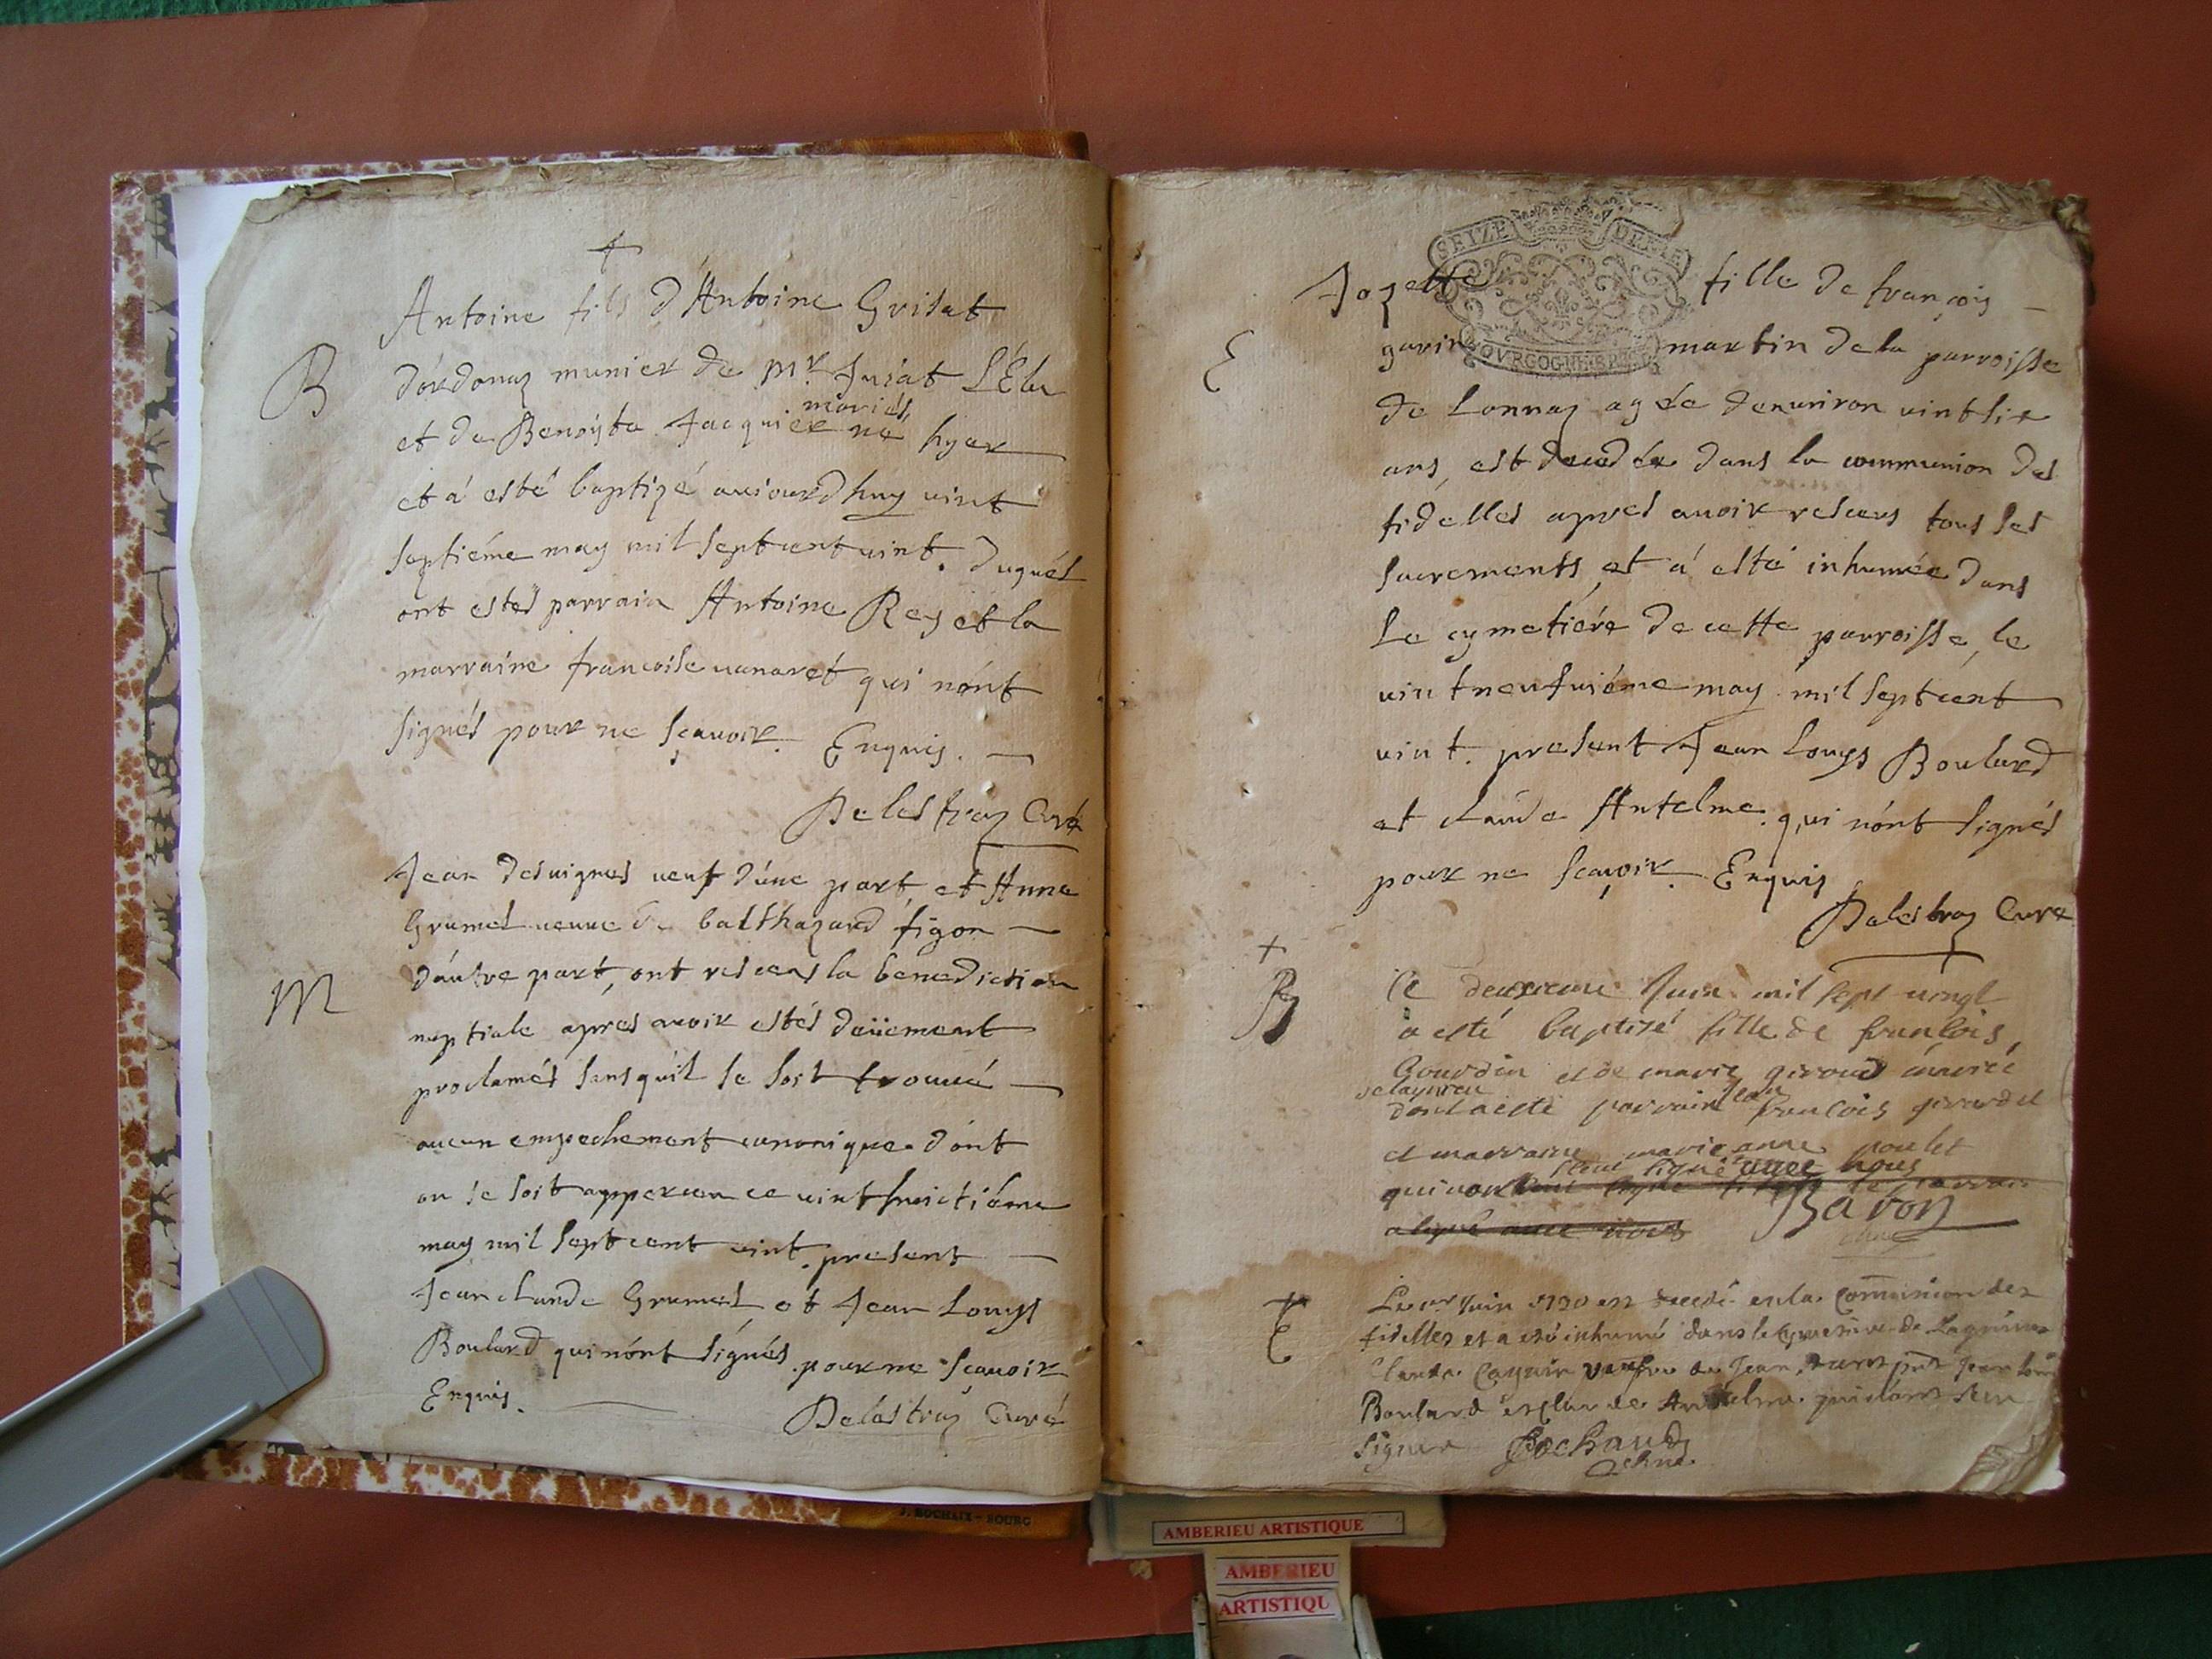 Antoine fils d'Antoine Grisat
B
d'ordonaz munier de Mr. Juiat L'Élu
mariés,
et de Benoyte Jacquier né hyer
et á esté baptizé aujourdhuy vint
septiéme may mil sept cent vint. duquél
ont estés parrain Antoine Rey et la
marraine francoise vanaret qui nónt
signés pour ne sçavoir. Enquis.
Delestraz Curé
Jean desvignes veuf dúne part, et Anne
Grumel veuve de balthazard figon
M
dáutre part, ont resceus la benediction
nuptiale apres avoir estés deüement
proclamés sans quíl se soit trouvé
aucun empechement canonique dónt
on se soit apperceu ce vint huictiéme
may mil sept cent vint. present
Jean claude Grumel, et Jean Louys
Boulard qui nónt signés pour ne sçavoir
Enquis.
Delestraz Curé
SEIZE DENIE
BOVRGOGNE BRE
Jozette fille de françois
E
garin martin de la parroisse
de Lonnaz agée denviron vint six
ans, est decedée dans la communion des
fidelles apres avoir resceus tous les
sacrements, et á esté inhumée dans
Le cymetiére de cette parroisse, le
vint neufviéme may mil sept cent
vint. present Jean Louys Boulard
et claude Antelme. qui nónt signés
pour ne sçavoir. Enquis
Delestraz Curé
B
le deuxieme Juin mil sept vingt
a esté baptizé fille de francois
Gourdin et de marie giroud mariés
de lagnieu
jean
dont a esté parrain francois girardet
et marraine marie anne poulet
signé avec nous
qui
a signé avec nous
Baron
E
Le Juin 1720 est decedé en la Communion des
fidelles et a esté inhumé dans le cymetiere de Lagnieu
Jean
Boulard et claude Antelme
signer Bochard
J. ROCHAIX - BOURG
AMBERIEU ARTISTIQUE
AMBERIEU
ARTISTIQU